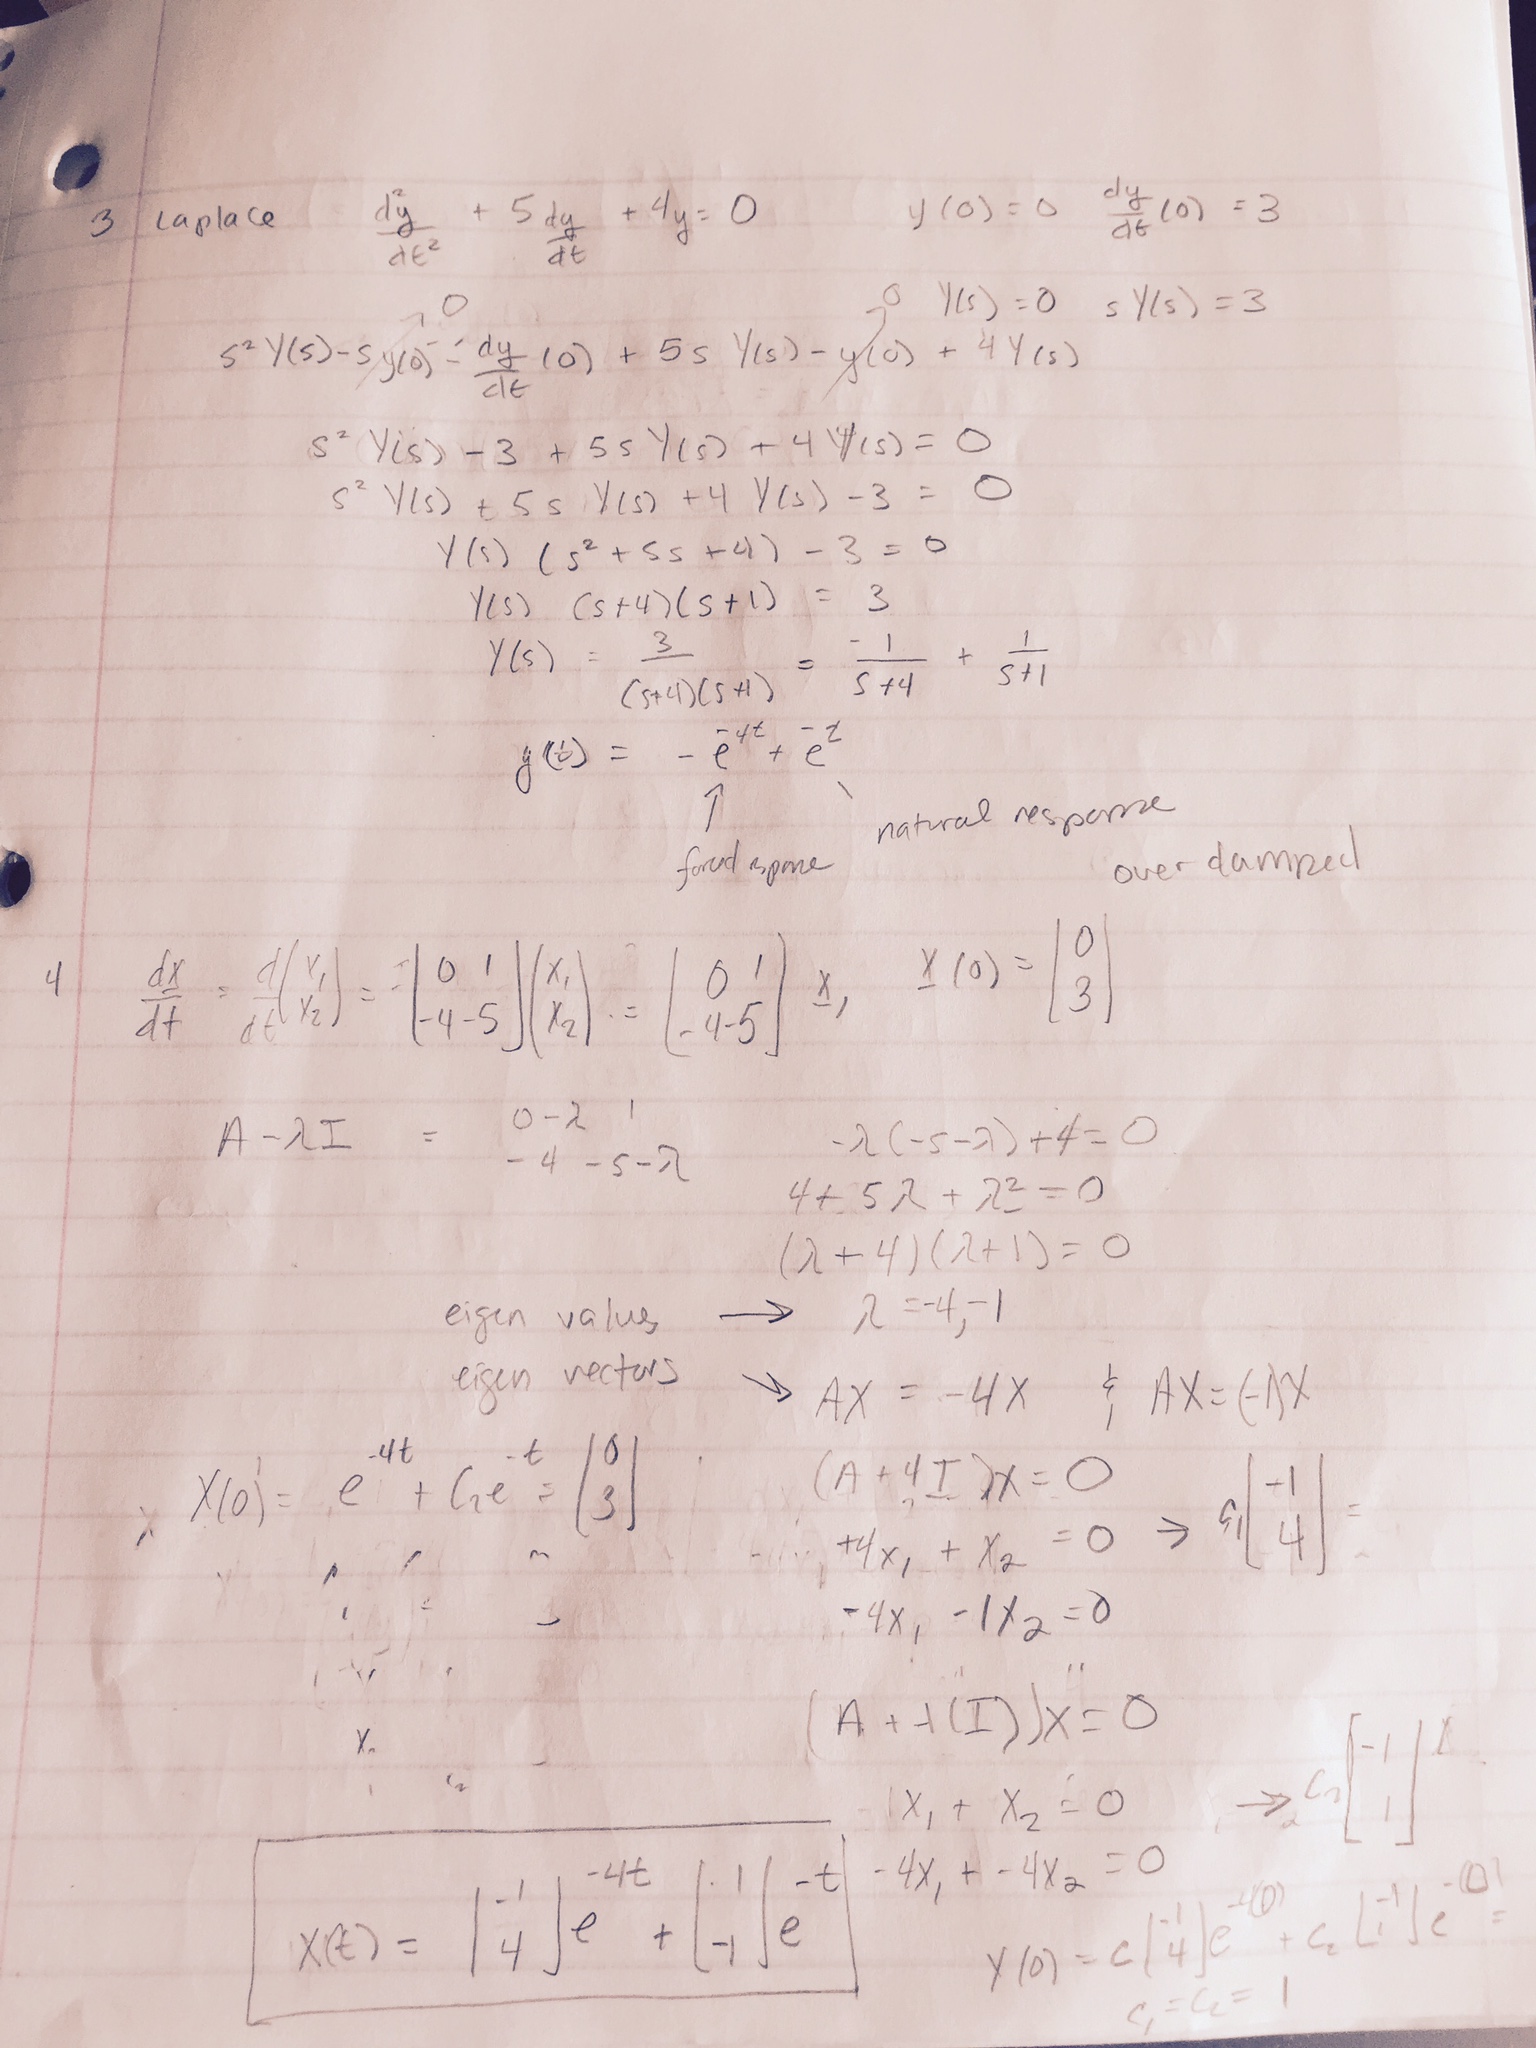 3 Laplace d²y/dt² + 5 dy/dt + 4y = 0 y(0) = 0 dy/dt (0) = 3
Y(s) = 0 sY(s) = 3
s² Y(s) - s y(0) - dy/dt (0) + 5s Y(s) - y(0) + 4 Y(s)
0 0
s² Y(s) - 3 + 5s Y(s) + 4 Y(s) = 0
s² Y(s) + 5s Y(s) + 4 Y(s) - 3 = 0
Y(s) (s² + 5s + 4) - 3 = 0
Y(s) (s+4)(s+1) = 3
Y(s) = 3/((s+4)(s+1)) = -1/(s+4) + 1/(s+1)
y(t) = - e^-4t + e^-t
↑ natural response
over damped
4 dx/dt = d/dt (x₁ x₂) = = [0 1; -4 -5] (x₁ x₂) = [0 1; -4 -5] x, x(0) = [0 3]
A - λI = 0-λ 1 -4 -5-λ
-λ(-5-λ)+4 = 0
4 + 5λ + λ² = 0
(λ+4)(λ+1) = 0
eigen values → λ = -4, -1
eigen vectors → AX = -4X & AX = (-1)X
X(0) = e^-4t + C₂e^-t = [0 3]
(A + 4I)X = 0
+4x₁ + x₂ = 0 → c₁ [-1 4] =
-4x₁ - 1x₂ = 0
(A + 1(I))X = 0
1x₁ + x₂ = 0 → c₂ [-1 1]
-4x₁ + -4x₂ = 0
X(t) = [-1 4] e^-4t + [1 -1] e^-t
X(0) = c [-1 4] e^-4(0) + c₂ [-1 1] e^-(0) =
c₁ = c₂ = 1